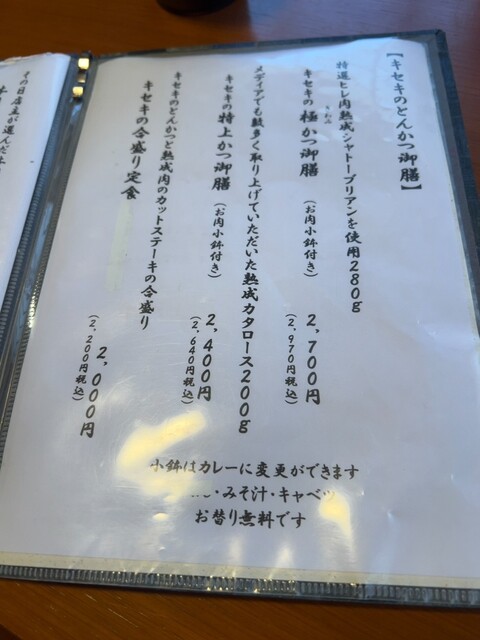 【キセキのとんかつ御膳】
特選ヒレ肉熟成シャトーブリアンを使用280g
キセキの 極 かつ御膳 (お肉小鉢付き) 2,700円
きわみ
(2,970円税込)
メディアでも数多く取り上げていただいた熟成カタロース200g
キセキの特上かつ御膳 (お肉小鉢付き) 2,400円
(2,640円税込)
キセキのとんかつと熟成肉のカットステーキの合盛り
キセキの合盛り定食 2,000円
(2,200円税込)
小鉢はカレーに変更ができます
・みそ汁・キャベツ
お替り無料です
その日店主が選んだ